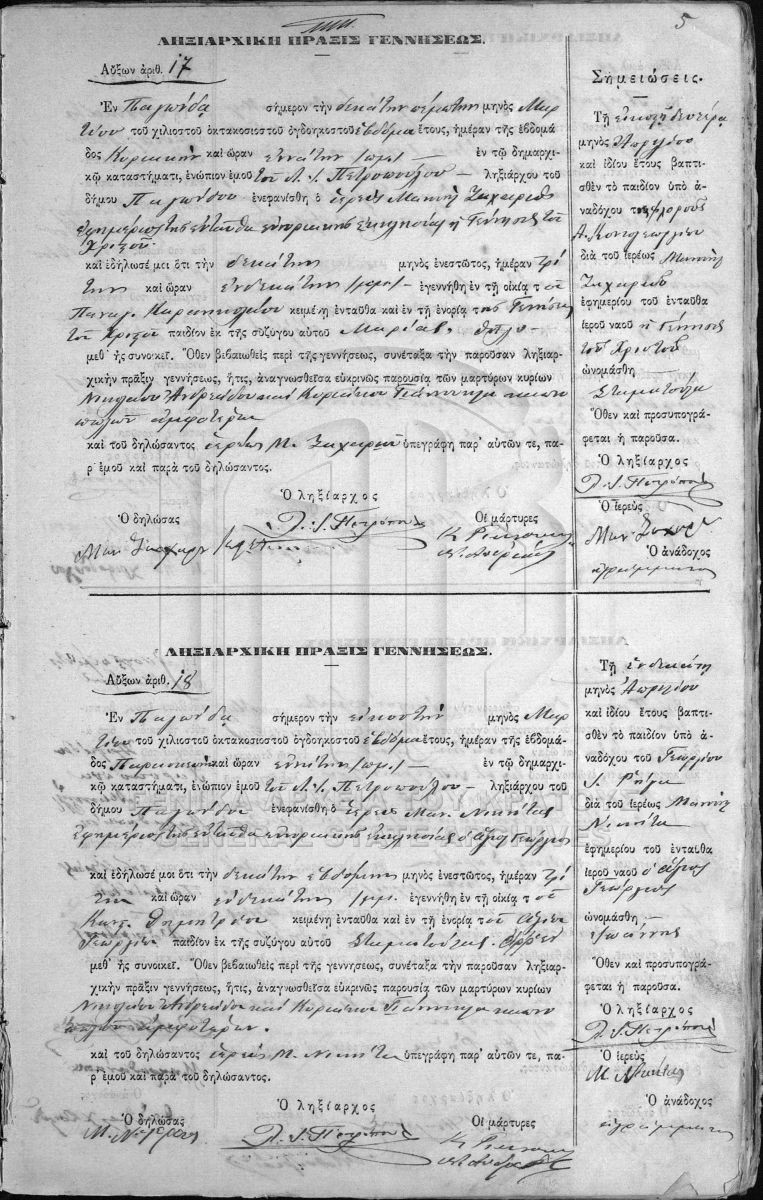 5
ΛΗΞΙΑΡΧΙΚΗ ΠΡΑΞΙΣ ΓΕΝΝΗΣΕΩΣ.
Αὔξων ἀριθ. 17
Ἐν Παγώνδα σήμερον τὴν δεκάτην πέμπτην μηνὸς Μαρ
τίου τοῦ χιλιοστοῦ ὀκτακοσιοστοῦ ὀγδοηκοστοῦ ἑβδόμου ἔτους, ἡμέραν τῆς ἑβδομά
δος Κυριακὴν καὶ ὥραν ἐννάτην π.μ. ἐν τῷ δημαρχι
κῷ καταστήματι, ἐνώπιον ἐμοῦ τοῦ Λ. Ι. Πετροπούλου ληξιάρχου τοῦ
δήμου Παγώνδου ἐνεφανίσθη ὁ ἱερεὺς Μανουὴλ Ζαχαρίου
ἐφημέριος τῆς ἐνταῦθα ἐνοριακῆς ἐκκλησίας ἡ Γέννησις τοῦ
Χριστοῦ
καὶ ἐδήλωσέ μοι ὅτι τὴν δεκάτην μηνὸς ἐνεστῶτος, ἡμέραν Τρί
την καὶ ὥραν ἑνδεκάτην ἐγεννήθη ἐν τῇ οἰκίᾳ τοῦ
Παναγ. κειμένῃ ἐνταῦθα καὶ ἐν τῇ ἐνορίᾳ τῆς Γεννήσεως
τοῦ Χριστοῦ παιδίον ἐκ τῆς συζύγου αὐτοῦ Μαρίας, θῆλυ
μεθ᾽ ἧς συνοικεῖ. Ὅθεν βεβαιωθεὶς περὶ τῆς γεννήσεως, συνέταξα τὴν παροῦσαν ληξιαρ-
χικὴν πρᾶξιν γεννήσεως, ἥτις, ἀναγνωσθεῖσα εὐκρινῶς παρουσίᾳ τῶν μαρτύρων κυρίων
Νικολάου Ἀνδρεάδου καὶ Κυριάκου
ἀμφοτέρων
καὶ τοῦ δηλώσαντος ἱερέως Μ. Ζαχαρίου ὑπεγράφη παρ᾽ αὐτῶν τε, πα-
ρ᾽ ἐμοῦ καὶ παρὰ τοῦ δηλώσαντος.
Ὁ ληξίαρχος
Ὁ δηλώσας Λ. Ι. Πετρόπουλος Οἱ μάρτυρες
Σημειώσεις.
Τῇ εἰκοστῇ δευτέρᾳ
μηνὸς Ἀπριλίου
καὶ ἰδίου ἔτους βαπτι-
σθὲν τὸ παιδίον ὑπὸ ἀ-
ναδόχου τῆς Φλοροῦς
Α. Κονιγεωργίου
διὰ τοῦ ἱερέως Μανουὴλ
Ζαχαρίου
ἐφημερίου τοῦ ἐνταῦθα
ἱεροῦ ναοῦ ἡ Γέννησις
τοῦ Χριστοῦ
ὠνομάσθη
Σταματούλα
Ὅθεν καὶ προσυπογρά-
φεται ἡ παροῦσα.
Ὁ ληξίαρχος
Λ. Ι. Πετρόπουλος
Ὁ ἱερεὺς
Μαν Ζαχαρ
Ὁ ἀνάδοχος
ἀγράμματος
ΛΗΞΙΑΡΧΙΚΗ ΠΡΑΞΙΣ ΓΕΝΝΗΣΕΩΣ.
Αὔξων ἀριθ. 18
Ἐν Παγώνδα σήμερον τὴν εἰκοστὴν μηνὸς Μαρ
τίου τοῦ χιλιοστοῦ ὀκτακοσιοστοῦ ὀγδοηκοστοῦ ἑβδόμου ἔτους, ἡμέραν τῆς ἑβδομά-
δος Παρασκευὴν καὶ ὥραν ἐννάτην π.μ. ἐν τῷ δημαρχι-
κῷ καταστήματι, ἐνώπιον ἐμοῦ τοῦ Λ. Ι. Πετροπούλου ληξιάρχου τοῦ
δήμου Παγώνδου ἐνεφανίσθη ὁ ἱερεὺς Μαν. Νικήτας
ἐφημέριος τῆς ἐνταῦθα ἐνοριακῆς ἐκκλησίας ὁ ἅγιος Γεώργιος
καὶ ἐδήλωσέ μοι ὅτι τὴν δεκάτην ἑβδόμην μηνὸς ἐνεστῶτος, ἡμέραν Τρί
την καὶ ὥραν ἑνδεκάτην ἐγεννήθη ἐν τῇ οἰκίᾳ τοῦ
Κωνς. Δημητρίου κειμένῃ ἐνταῦθα καὶ ἐν τῇ ἐνορίᾳ τοῦ ἁγίου
Γεωργίου παιδίον ἐκ τῆς συζύγου αὐτοῦ Σταματούλας. ἄρρεν
μεθ᾽ ἧς συνοικεῖ. Ὅθεν βεβαιωθεὶς περὶ τῆς γεννήσεως, συνέταξα τὴν παροῦσαν ληξιαρ-
χικὴν πρᾶξιν γεννήσεως, ἥτις, ἀναγνωσθεῖσα εὐκρινῶς παρουσίᾳ τῶν μαρτύρων κυρίων
Νικολάου Ἀνδρεάδου καὶ Κυριάκου
ἀμφοτέρων.
καὶ τοῦ δηλώσαντος ἱερέως Μ. Νικήτα ὑπεγράφη παρ᾽ αὐτῶν τε, πα-
ρ᾽ ἐμοῦ καὶ παρὰ τοῦ δηλώσαντος.
Ὁ ληξίαρχος
Ὁ δηλώσας Λ. Ι. Πετρόπουλος Οἱ μάρτυρες
Τῇ ἑνδεκάτῃ
μηνὸς Ἀπριλίου
καὶ ἰδίου ἔτους βαπτι-
σθὲν τὸ παιδίον ὑπὸ ἀ-
ναδόχου τοῦ Γεωργίου
Ι. Ρήγα
διὰ τοῦ ἱερέως Μανουὴλ
Νικήτα
ἐφημερίου τοῦ ἐνταῦθα
ἱεροῦ ναοῦ ὁ ἅγιος
Γεώργιος
ὠνομάσθη
Ἰωάννης
Ὅθεν καὶ προσυπογρά-
φεται ἡ παροῦσα.
Ὁ ληξίαρχος
Λ. Ι. Πετρόπουλος
Ὁ ἱερεὺς
Μ. Νικήτας
Ὁ ἀνάδοχος
ἀγράμματος